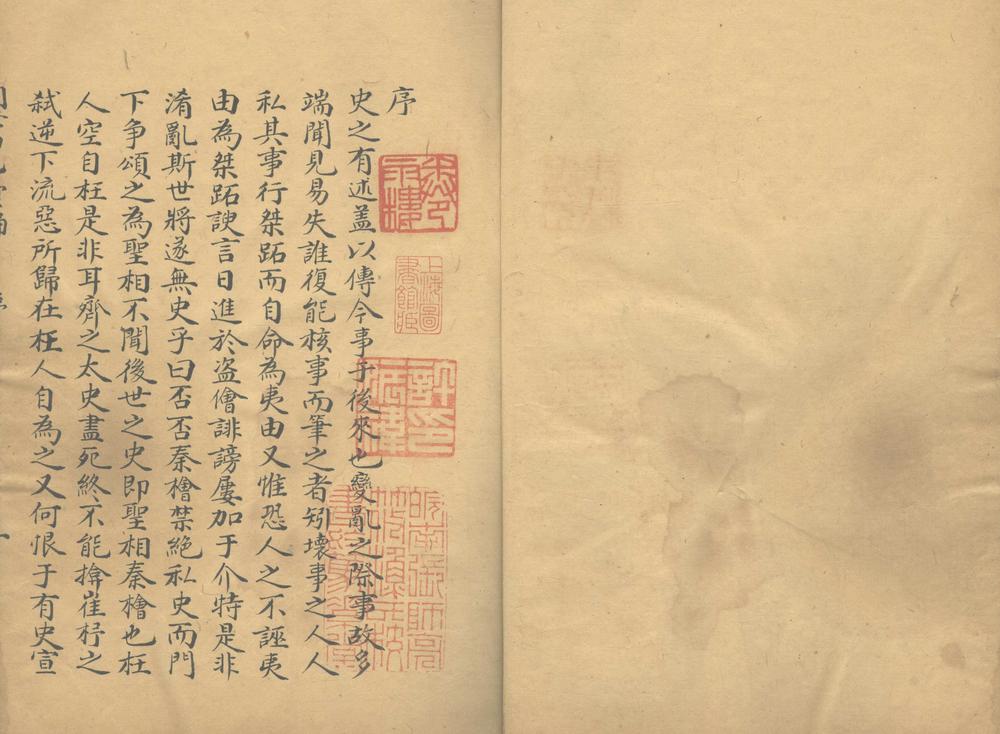 序
史之有述蓋以傳今事于後來也變亂之際事故多
端聞見易失誰復能核事而筆之者矧壞事之人人
私其事行桀跖而自命為夷由又惟恐人之不誣夷
由為桀跖諛言日進於盜儈誹謗屢加于介特是非
淆亂斯世將遂無史乎曰否否秦檜禁絕私史而門
下爭頌之為聖相不聞後世之史即聖相秦檜也枉
人空自枉是非耳齊之太史盡死終不能揜崔杼之
弒逆下流惡所歸在枉人自為之又何恨于有史宣
上海圖
書館藏